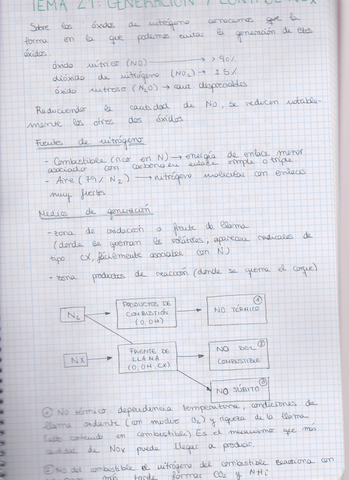 TEMA 21: GENERACIÓN Y CONTROL NOx
Sobre los óxidos de nitrógeno conocemos que la
forma en la que podemos evitar la generación de estos
óxidos.
óxido nítrico (NO) → > 90%
dióxido de nitrógeno (NO2) → ≤ 5%
óxido nitroso (N2O) → casi despreciables
Reduciendo la cantidad de NO, se reducen notable-
mente los otros dos óxidos.
Fuentes de nitrógeno
- Combustible (rico en N) → energía de enlace menor
asociados con carbono en enlace simple o triple
- Aire (79% N2) → nitrógeno molecular con enlaces
muy fuertes
Medios de generación
- zona de oxidación o frente de llama
(donde se queman los volátiles, aparecen radicales de
tipo CX, fácilmente asociables con N)
- zona productos de reacción (donde se quema el coque)
N2
PRODUCTOS DE
COMBUSTIÓN
(O, OH)
NO TÉRMICO
1
NX
FRENTE DE
LLAMA
(O, OH, CX)
NO DEL
COMBUSTIBLE
2
NO SÚBITO
3
1 NO térmico: dependencia temperatura, condiciones de
llama ardiente (con mucho O2) y riqueza de la llama
(alto contenido en combustible). Es el mecanismo que más
cantidad de NOx puede llegar a producir.
2 NO del combustible: el nitrógeno del combustible reacciona con
para formar CO2 y NHi